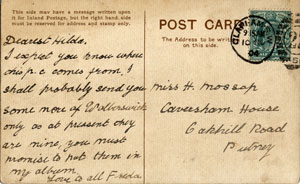 This side may have a message written upon
it for Inland Postage, but the right hand side
must be reserved for address and stamp only.
POST CARD
The Address to be written
on this side.
Dearest Hilda,
I expect you know where
this p.c comes from, I
shall probably send you
some more of Walberswick
only as at present they
are mine, you must
promise to put them in
my album.
Love to all Freda.
Miss H. Mossop
Caversham House
Oakhill Road
Putney